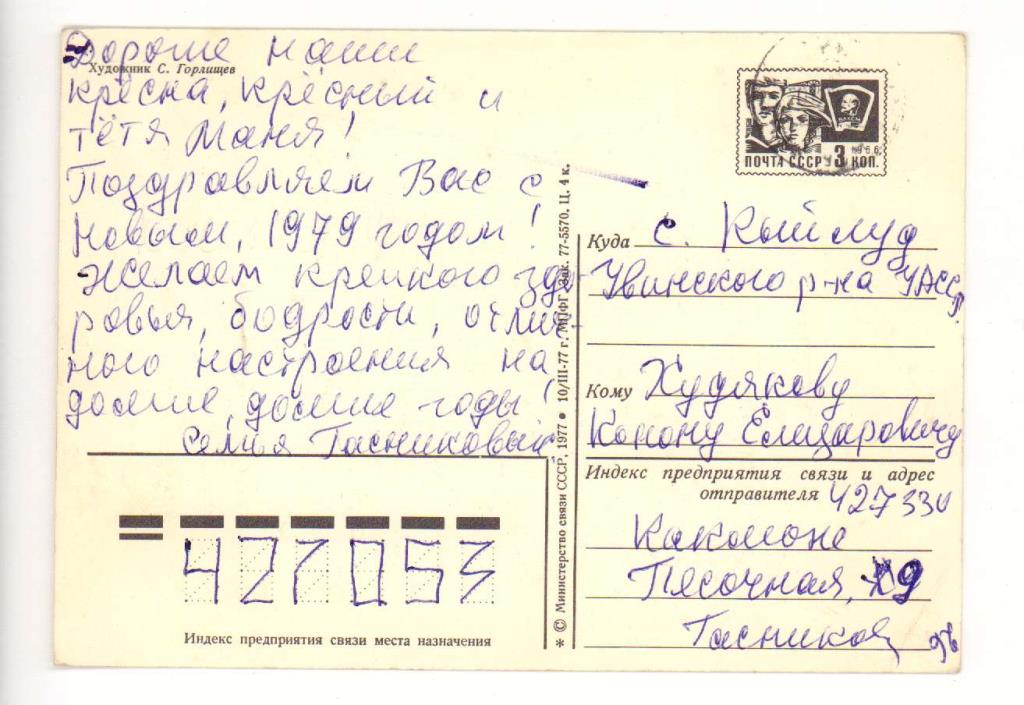 Дорогие наши
Художник С. Горлищев
крёсна, крёсный и
тётя Маня!
Поздравляем Вас с
Новым, 1979 годом!
Желаем крепкого здо
ровья, бодрости, отлич
ного настроения на
долгие, долгие годы!
Семья Тасниковых
ПОЧТА СССР 3 КОП.
ВЛКСМ
1966
Куда с. Кыйлуд
Увинского р-на УАССР
Кому Худякову
Конону Елизаровичу
Индекс предприятия связи и адрес
отправителя 427330
Какможе
Песочная, 9
Тасников
427053
Индекс предприятия связи места назначения
* © Министерство связи СССР, 1977 ● 10/III-77 г. МПФГ. Зак. 77-5570. Ц. 4 к.